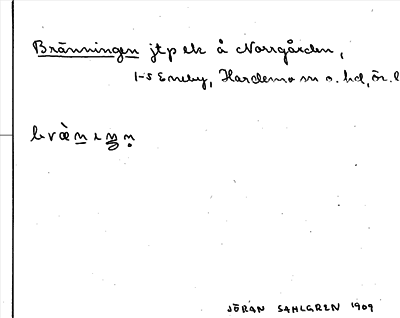 Bränningen jtp ek å Norrgården,
1-5 Eneby, Hardemo sn o. hd, ör. l
JÖRAN SAHLGREN 1909